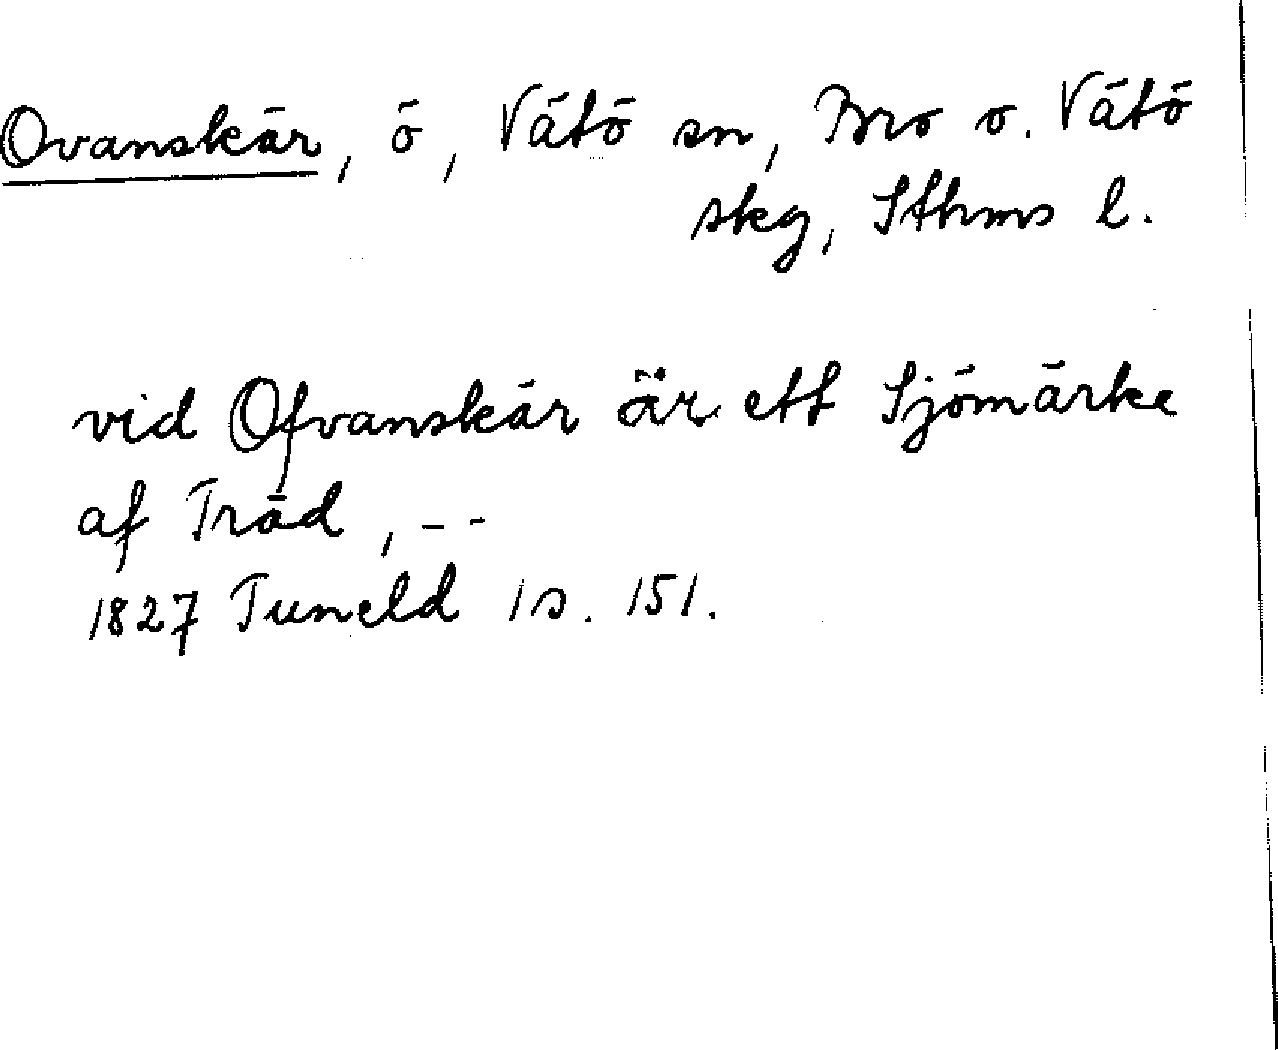 Ovanskär, ö, Vätö sn, Bro o. Vätö
skg, Sthms l.
vid Ofvanskär är ett Sjömärke
af Träd, --
1827 Tuneld 1 s. 151.